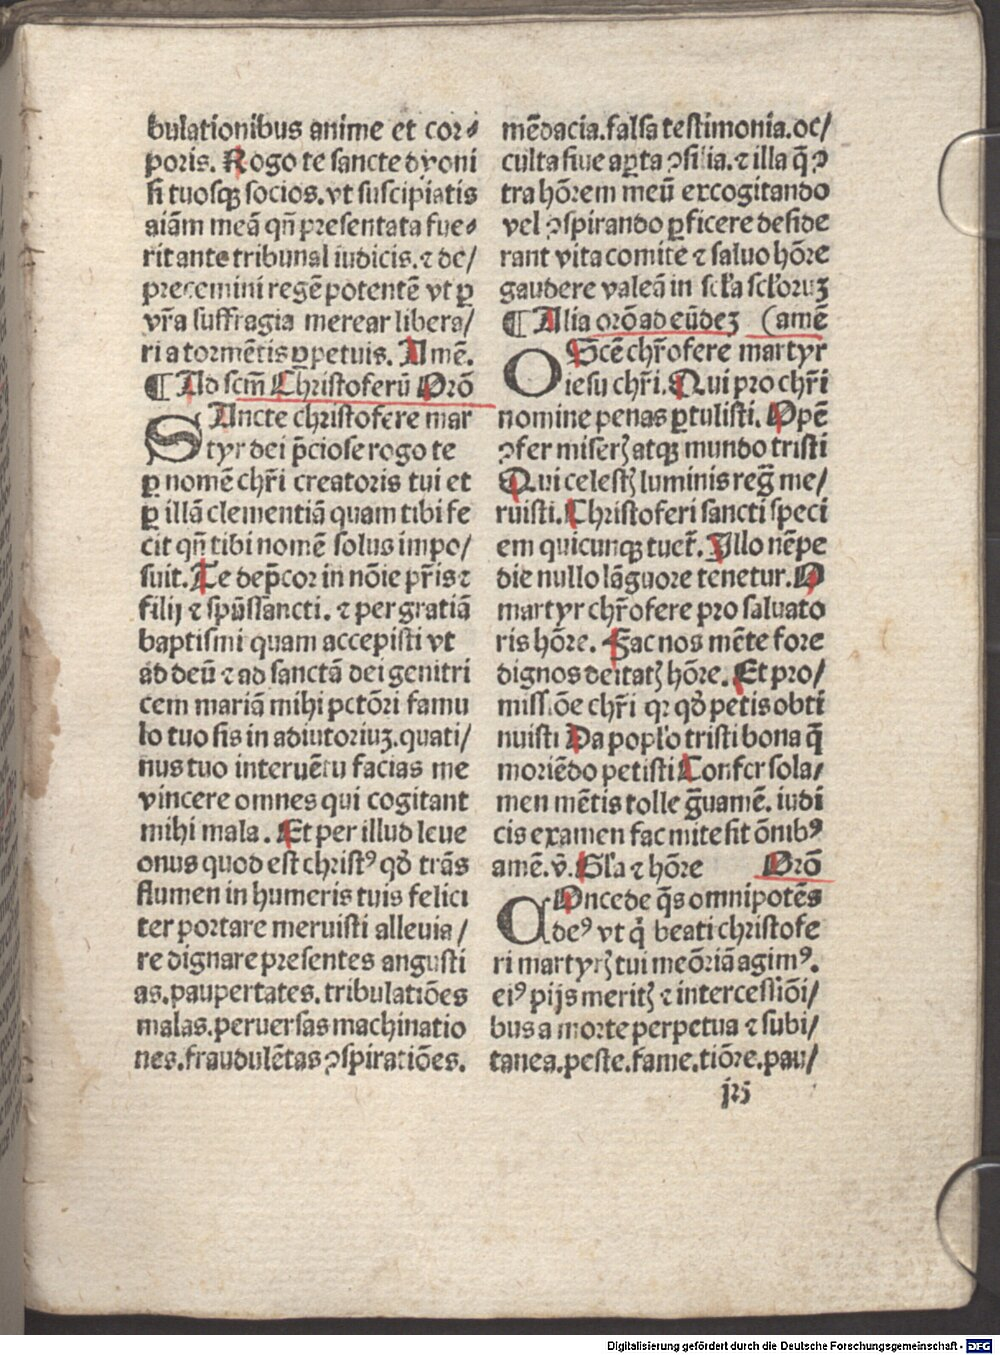 bulationibus anime et cor⸗
poris. Rogo te sancte dyoni
si tuosqꝫ socios. vt suscipiatis
aiām meā qn̄ presentata fue⸗
rit ante tribunal iudicis. ⁊ de/
precemini regē potentē vt ꝑ
vr̄a suffragia merear libera/
ri a tormētis ꝑpetuis. Amē.
¶ Ad scm̄ Christoferū Orō
SAncte christofere mar
tyr dei p̄ciose rogo te
ꝑ nomē chr̄i creatoris tui et
ꝑ illā clementiā quam tibi fe
cit qn̄ tibi nomē solus impo/
suit. Te dep̄cor in nōie pr̄is ⁊
filij ⁊ spūssancti. ⁊ per gratiā
baptismi quam accepisti vt
ad deū ⁊ ad sanctā dei genitri
cem mariā mihi pctōri famu
lo tuo sis in adiutoriuꝫ. quati/
nus tuo interuētu facias me
vincere omnes qui cogitant
mihi mala. Et per illud leue
onus quod est christꝰ qd̄ trās
flumen in humeris tuis felici
ter portare meruisti alleuia/
re dignare presentes angusti
as. paupertates. tribulatiōes
malas. peruersas machinatio
nes. fraudulētas ꝯspiratiōes.
mēdacia. falsa testimonia. oc/
culta siue aꝑta ꝯsilia. ⁊ illa q̄ ꝯ
tra hōrem meū excogitando
vel ꝯspirando ꝑficere deside
rant vita comite ⁊ saluo hōre
gaudere valeā in scl̓a scl̓oruꝫ
¶ Alia orō ad eūdeꝫ (amē
O Scē chr̄ofere martyr
iesu chr̄i. Qui pro chr̄i
nomine penas ꝑtulisti. Opē
ꝯfer miserꝭ atqꝫ mundo tristi
Qui celestꝭ luminis reḡ me/
ruisti. Christoferi sancti speci
em quicunqꝫ tuet᷑. Illo nēpe
die nullo lāguore tenetur. O
martyr chr̄ofere pro saluato
ris hōre. Fac nos mēte fore
dignos deitatꝭ hōre. Et pro/
missiōe chr̄i qr qd̄ petis obti
nuisti Da popl̓o tristi bona q̄
moriēdo petisti Confer sola/
men mētis tolle ḡuamē. iudi
cis examen fac mite sit ōnibꝰ
amē. v̄. Gl̓a ⁊ hōre Orō
COncede q̄s omnipotēs
deꝰ vt q̓ beati christofe
ri martyrꝭ tui meōriā agimꝰ.
eiꝰ pijs meritꝭ ⁊ intercessiōi/
bus a morte perpetua ⁊ subi/
tanea. peste. fame. tiōre. pau/
Digitalisierung gefördert durch die Deutsche Forschungsgemeinschaft - DFG